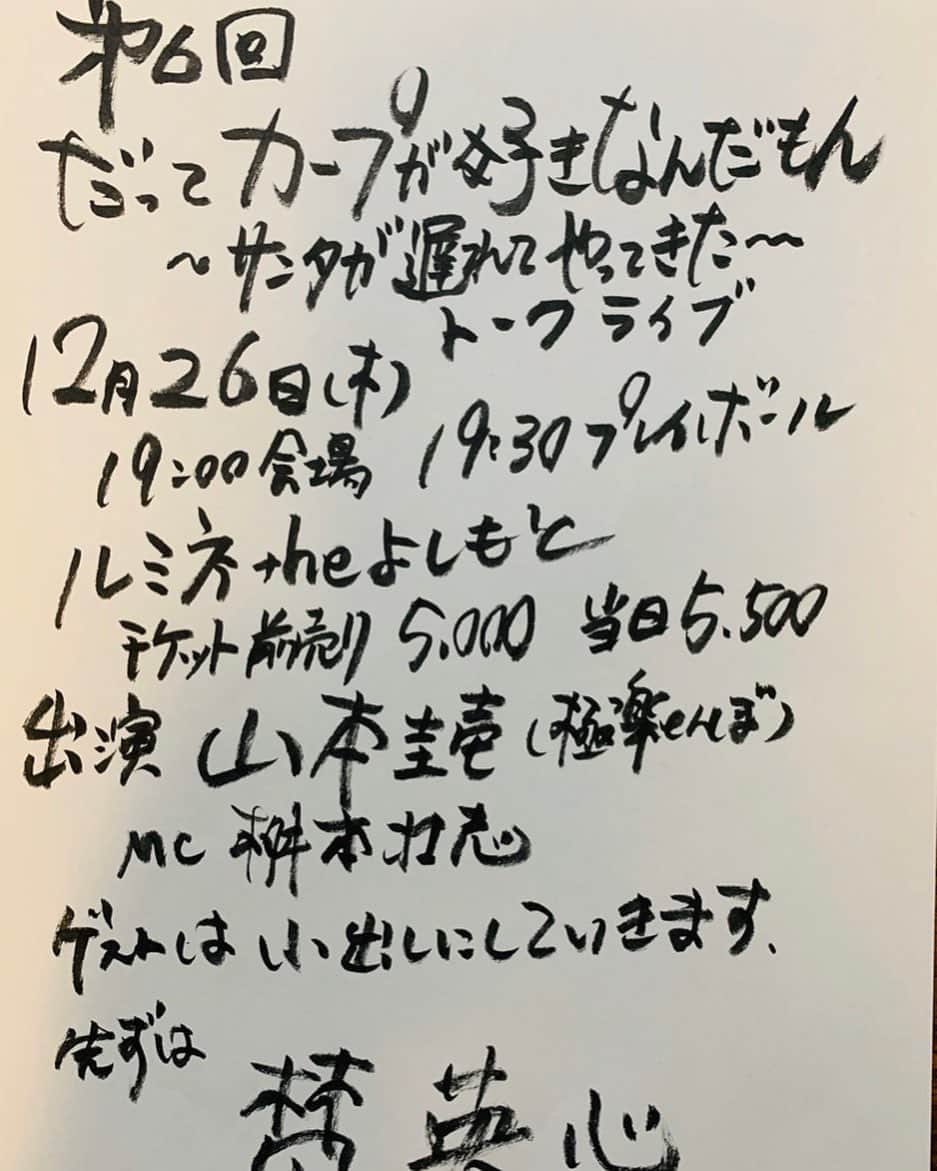 オ6回
だってカープが好きなんだもん
〜サンタが遅れてやってきた〜
トークライブ
12月26日(木)
19:00会場 19:30プレイボール
ルミネtheよしもと
チケット前売り 5.000 当日5.500
出演 山本圭壱(極楽とんぼ)
MC 桝本壮志
ゲストは小出しにしていきます、
先ずは
梵 英心